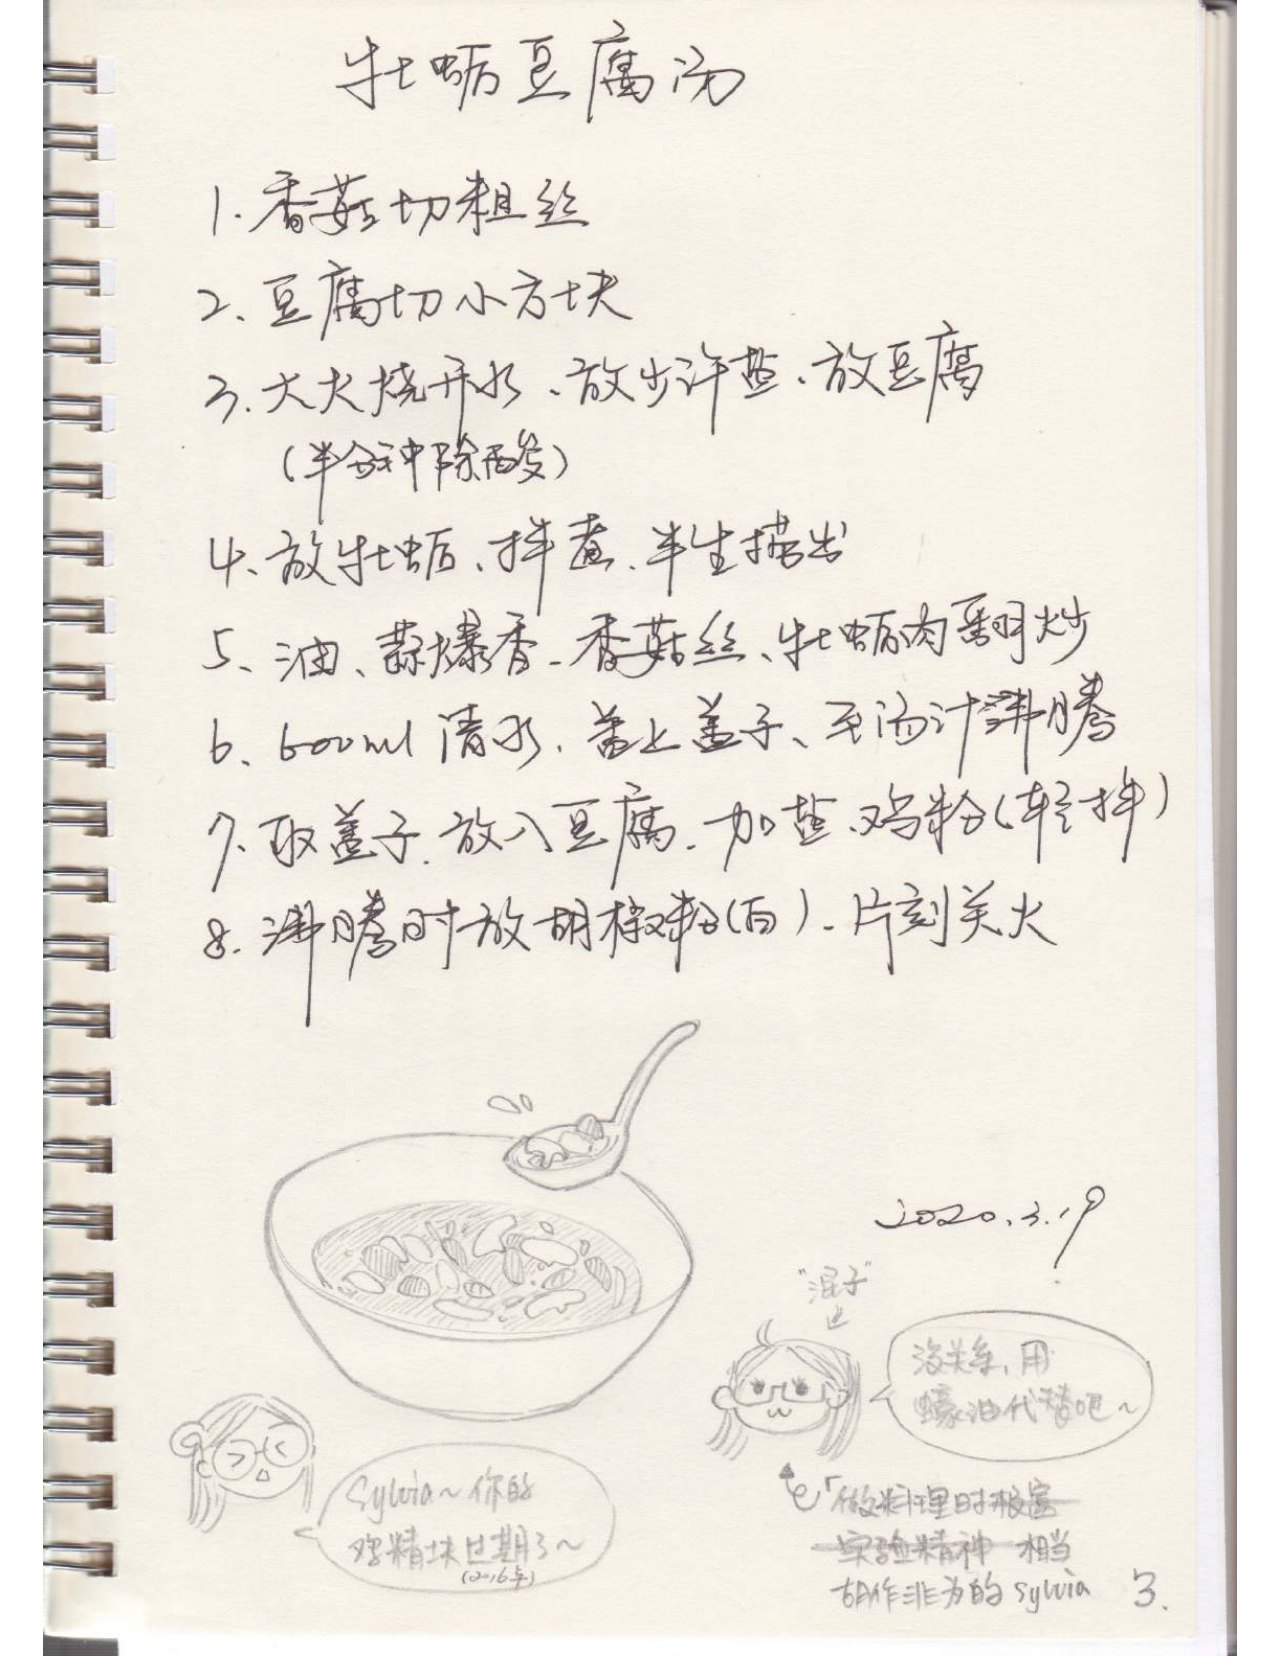 牡蛎豆腐汤
1.香菇切粗丝
2、豆腐切小方块
3.大火烧开水、放少许盐、放豆腐
(半分钟除酸)
4、放牡蛎、拌煮、半生捞出
5、油、蒜爆香、香菇丝、牡蛎肉翻炒
6、600ml清水、盖上盖子、至汤汁沸腾
7、取盖子、放入豆腐、加盐、鸡粉(轻拌)
8.沸腾时放胡椒粉(白)、片刻关火
2020.3.19
"混子"
没关系,用
蠔油代替吧~
Sylvia~你的
鸡精块过期了~
(2016年)
做料理时很富
实验精神 相当
胡作非为的Sylvia
3.